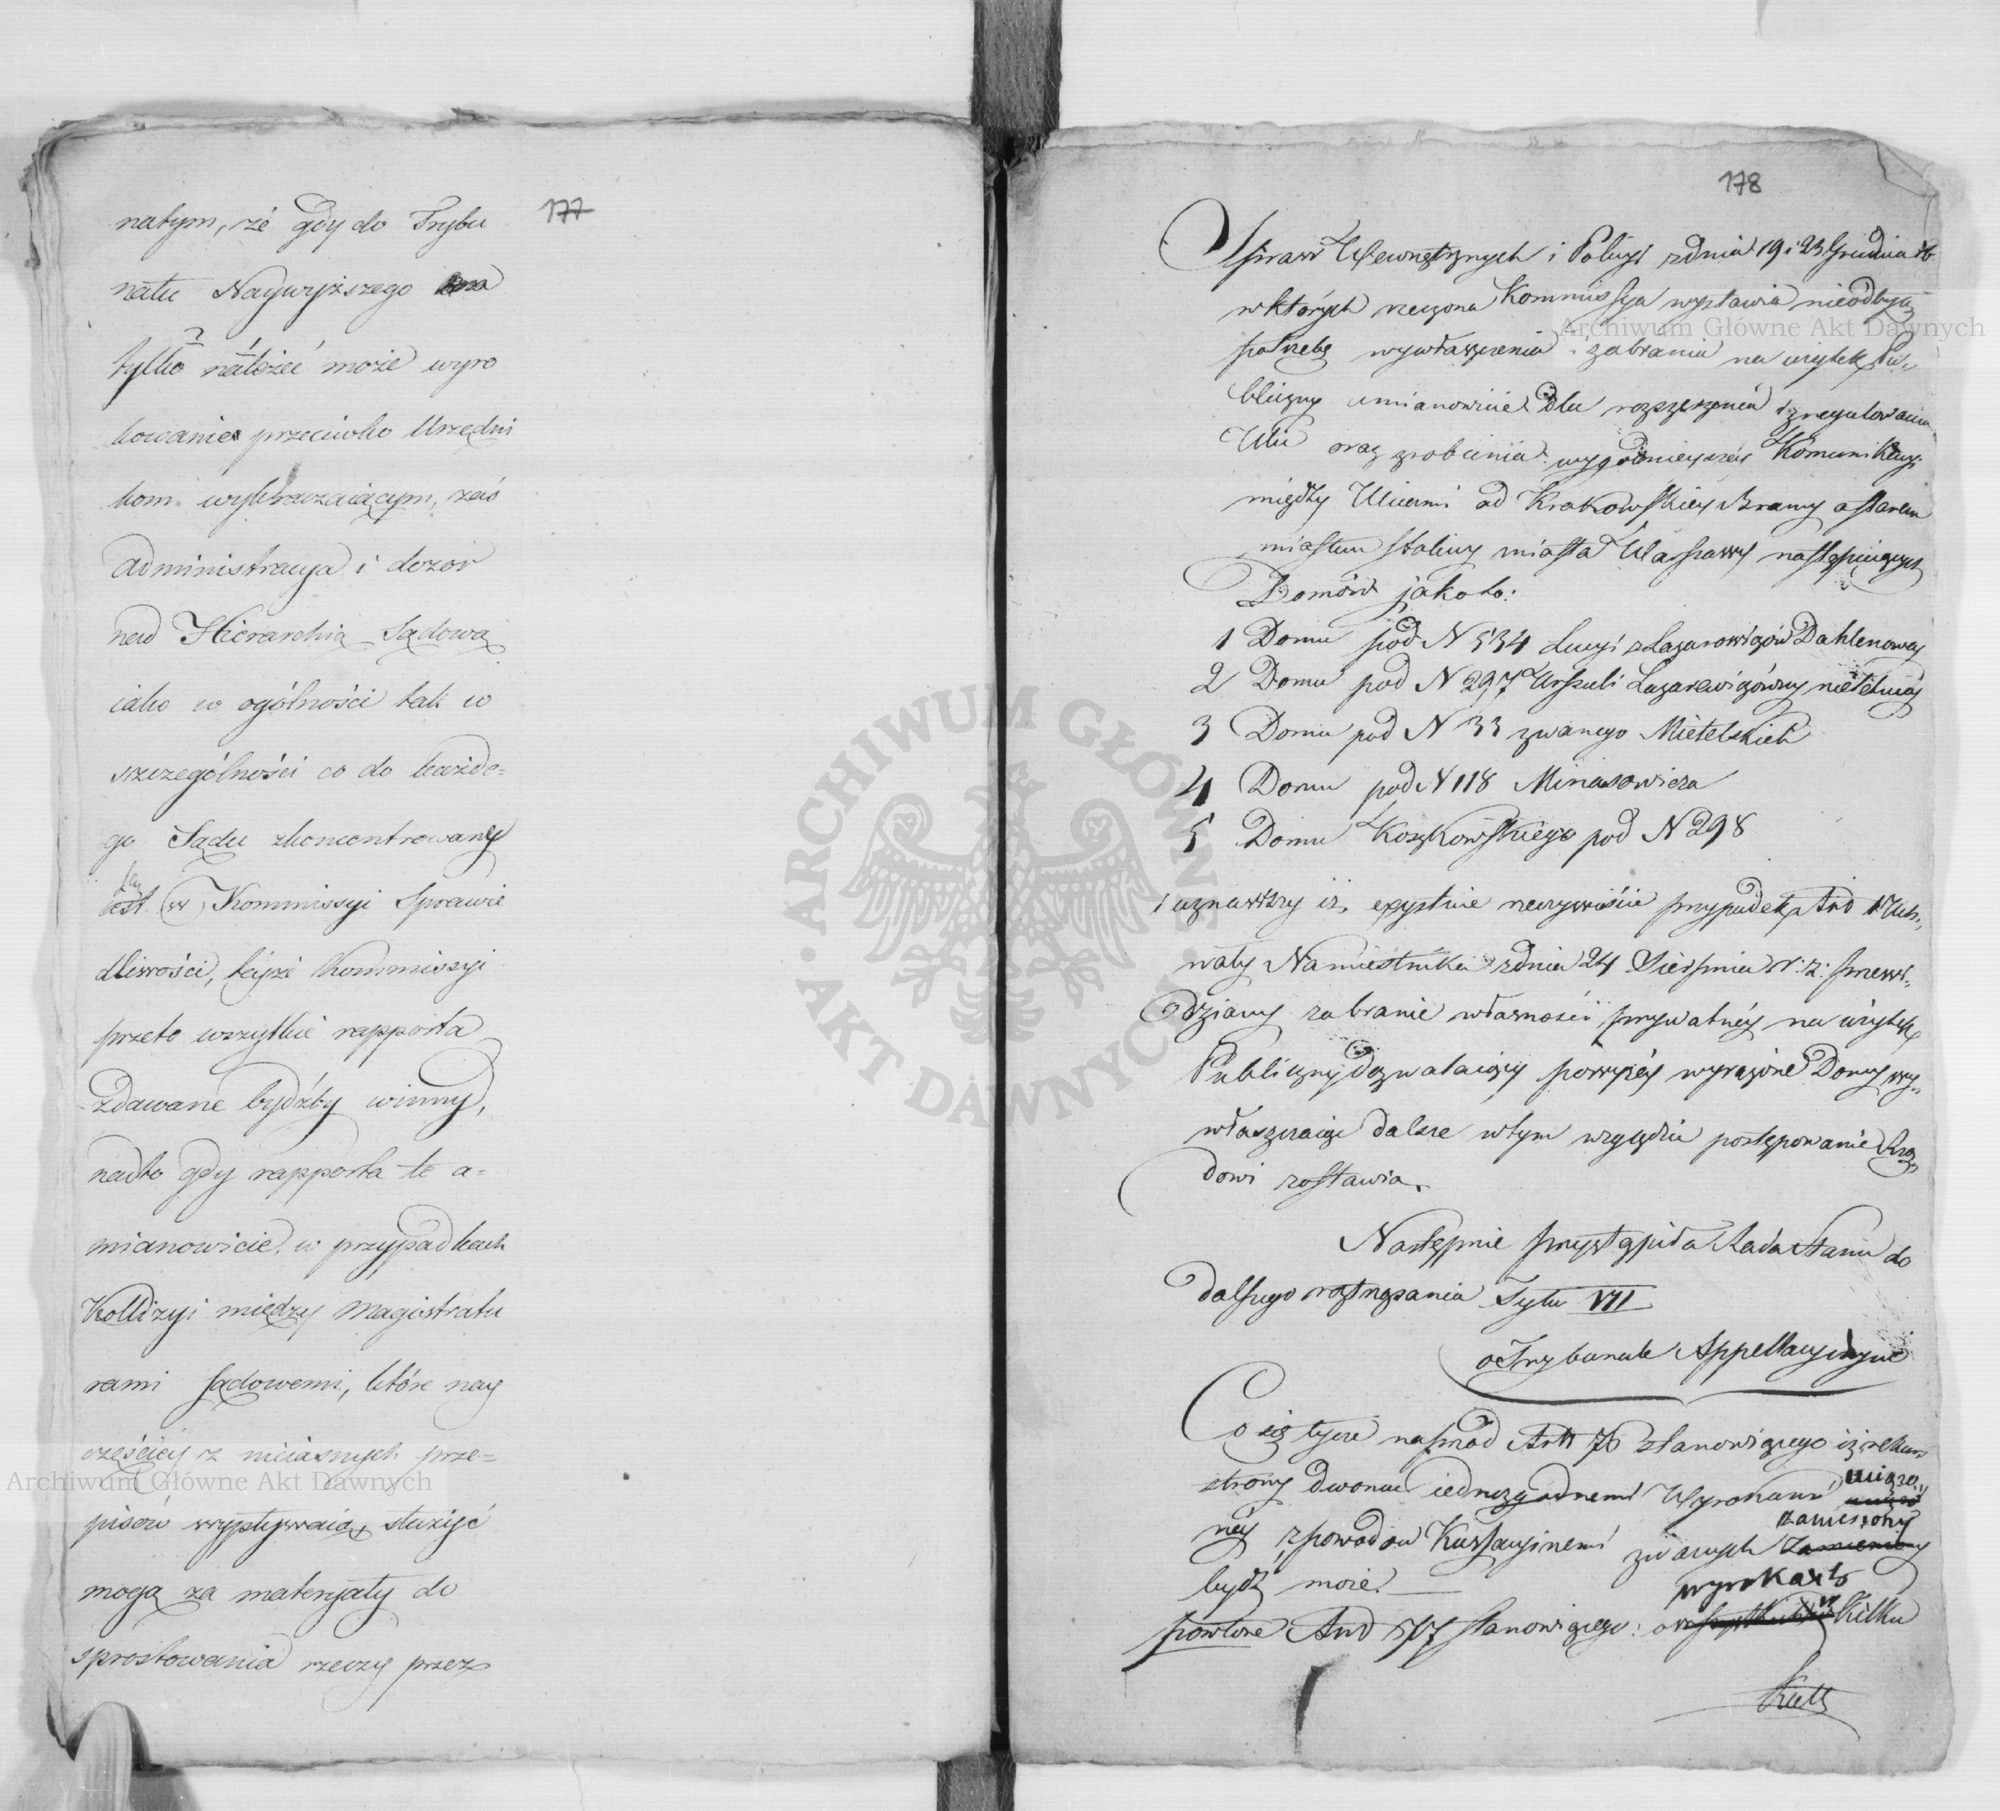 177
natym, że gdy do Trybu
nału Naywyższego
tylko należeć może wyro
kowanie przeciwko Urzędni
kom wykraczaiącym, zaś
administracya i dozór
nad Hierarchią Sądową
iako w ogólności tak w
szczególności co do każde-
go Sądu zkoncentrowany
iest (w) Kommissyi Sprawie
dliwości, teyże Kommissyi
przeto wszystkie rapporta
zdawane bydźby winny,
nadto gdy rapporta te a-
mianowicie w przypadkach
Kollizyi między Magistratu
rami sądowemi, które nay
częściey z nieiasnych prze-
pisów wypływaią, służyć
mogą za materyały do
sprostowania rzeczy przez
178
Spraw Wewnętrznych i Policyi z dnia 19 i 23 Grudnia rb
w których rzeczona Kommissya wystawia nieodbytą
potrzebę wywłaszczenia i zabrania na użytek Pu-
bliczny a mianowicie dla rozszerzenia i zregulowania
Ulic oraz zrobienia wygodnieyszey Kommunikacyi
między Ulicami od Krakowskiey Bramy a starem
miastem stolicy miasta Warszawy następuiących
Domów jako to:
1 Domu pod N 534 Łucyi z Łazarowiczów Dahlenowey
2 Domu pod N 297 Urszuli Łazarewiczówny nieletniey
3 Domu pod N 33 zwanego Mietelskich
4 Domu pod N 118 Minasowicza
5 Domu Koszkowskiego pod N 298
i uznawszy iż exystuie rzeczywiście przypadek Art 1 Uch-
wały Namiestnika z dnia 24 Sierpnia r: z: przewi-
dziany zabranie własności prywatney na użytek
Publiczny dozwalaiący powyżey wyrażone Domy wy-
właszczaiąc dalsze w tym względzie postępowanie Rzą-
dowi zostawia.
Następnie przystąpiła Rada Stanu do
dalszego roztrząsania Tytu VII
o Trybunale Appellacyinym
Co się tycze naprzód Artt 76 stanowiącego iż rekurs
strony dwoma iednozgodnemi Wyrokami uiązo-
ney z powodów Kassacyinemi zwanych zaniesiony
bydź może.
powtóre Art 77 stanowiącego: o wyrokach kilku